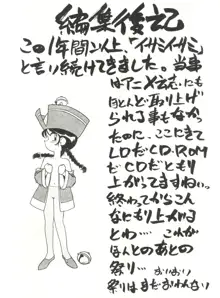 編集後記
この1年間以上、「イサミイサミ」
と言い続けてきました。当事
はアニメ誌にも
ほとんど取り上げ
られる事もなか
ったのに、ここにきて
LDだCD-ROM
だCDだともり
上がってますねぃ。
終わってからこん
なにもり上がると
は… これが
ほんとのあとの
祭り…
祭りはまだおわんない